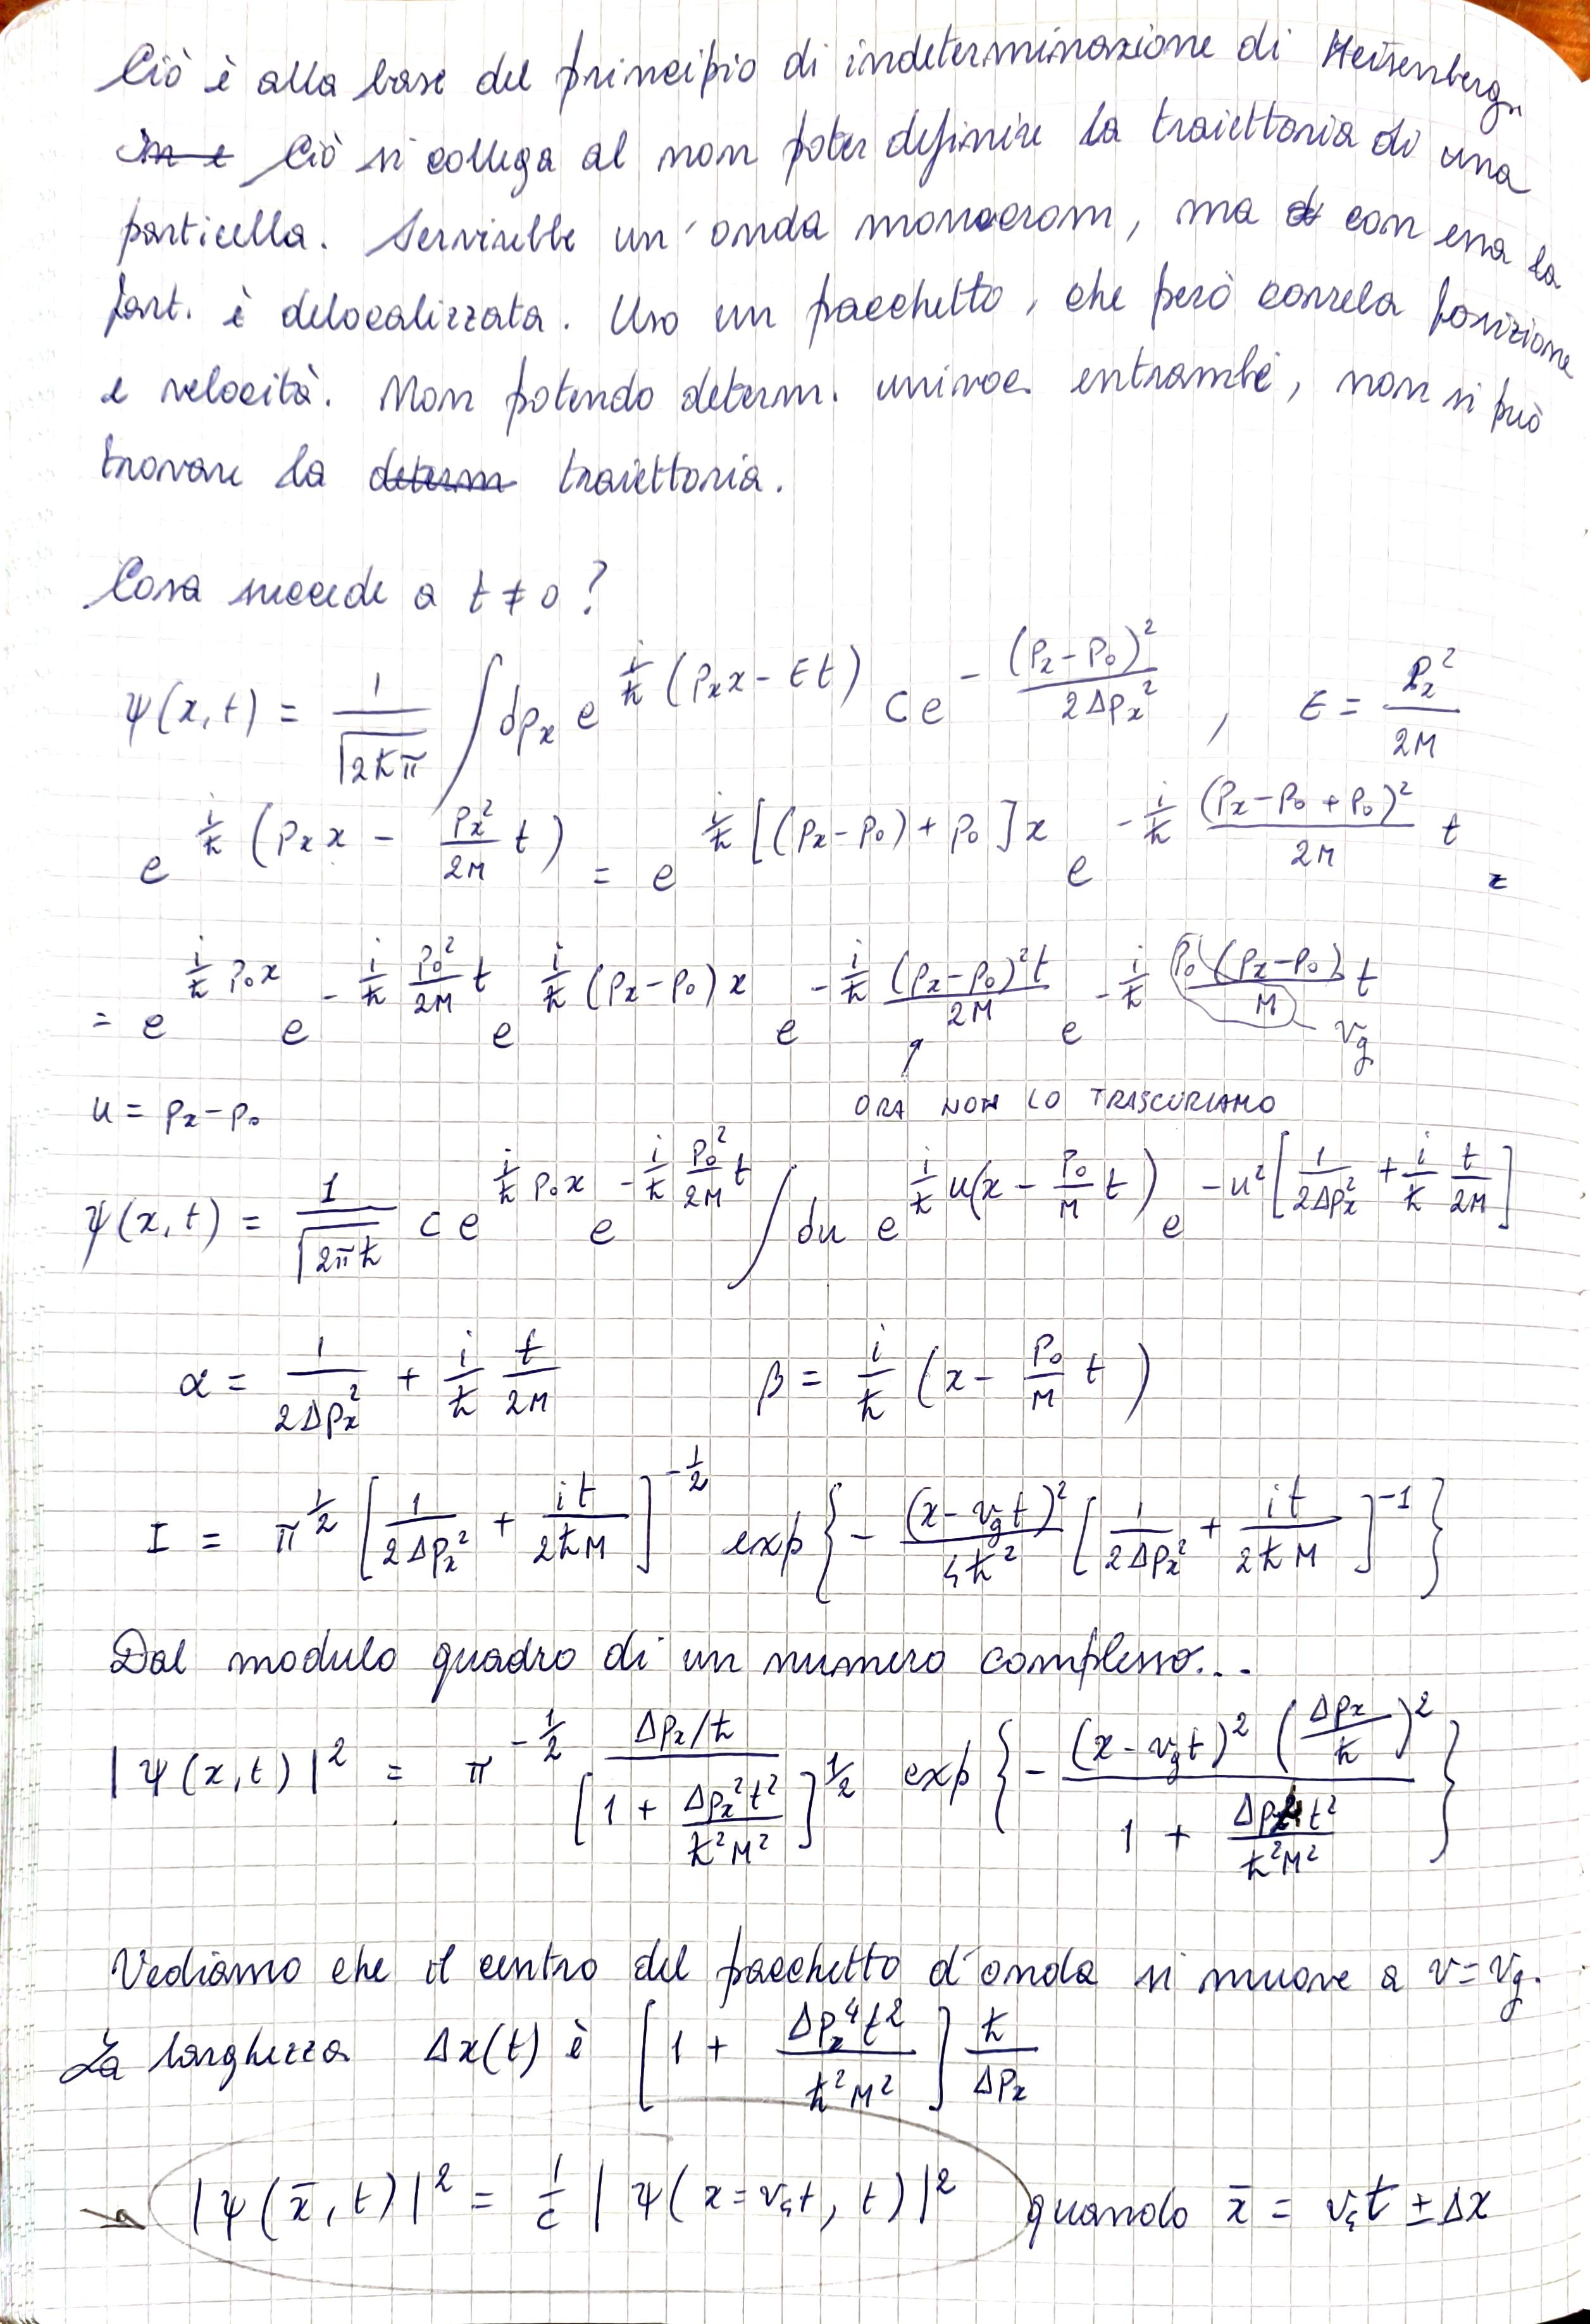 Ciò è alla base del principio di indeterminazione di Heisenberg.
~~in e~~ Ciò si collega al non poter definire la traiettoria di una
particella. Servirebbe un'onda monocrom, ma con essa la
part. è delocalizzata. Uso un pacchetto, che però correla posizione
e velocità. Non potendo determ. univoc. entrambe, non si può
trovare la ~~determ~~ traiettoria.
Cosa succede a t ≠ 0?
ψ(x,t) = 1/√(2ħπ) ∫ dpₓ e^{i/ħ (pₓx − Et)} C e^{−(pₓ−p₀)²/(2Δpₓ²)} , E = pₓ²/2M
e^{i/ħ (pₓx − pₓ²/2M t)} = e^{i/ħ [(pₓ−p₀)+p₀]x} e^{−i/ħ (pₓ−p₀+p₀)²/2M t} =
= e^{i/ħ p₀x} e^{−i/ħ p₀²/2M t} e^{i/ħ (pₓ−p₀)x} e^{−i/ħ (pₓ−p₀)²t/2M} e^{−i/ħ p₀(pₓ−p₀)/M t} v_g
u = pₓ−p₀ ORA NON LO TRASCURIAMO
ψ(x,t) = 1/√(2πħ) C e^{i/ħ p₀x} e^{−i/ħ p₀²/2M t} ∫ du e^{i/ħ u(x − p₀/M t)} e^{−u²[1/(2Δpₓ²) + i/ħ t/2M]}
α = 1/(2Δpₓ²) + i/ħ t/2M β = i/ħ (x − p₀/M t)
I = π^{1/2} [1/(2Δpₓ²) + it/(2ħM)]^{−1/2} exp{−(x−v_g t)²/(4ħ²) [1/(2Δpₓ²) + it/(2ħM)]^{−1}}
Dal modulo quadro di un numero complesso...
|ψ(x,t)|² = π^{−1/2} (Δpₓ/ħ)/[1 + Δpₓ²t²/(ħ²M²)]^{1/2} exp{−(x−v_g t)² (Δpₓ/ħ)²/(1 + Δpₓ⁴t²/(ħ²M²))}
Vediamo che il centro del pacchetto d'onda si muove a v=v_g.
La larghezza Δx(t) è [1 + Δpₓ⁴t²/(ħ²M²)] ħ/Δpₓ
↘ |ψ(x̄,t)|² = 1/e |ψ(x=v_g t, t)|² quando x̄ = v_g t ± Δx